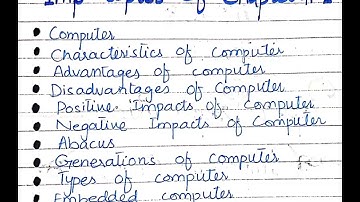 Imp Topics of Chapter # 1
• Computer
• Characteristics of Computer
• Advantages of computer
• Disadvantages of Computer
• Positive Impacts of Computer
• Negative Impacts of Computer
• Abacus
• Generations of computer
• Types of computer
• Embedded computer